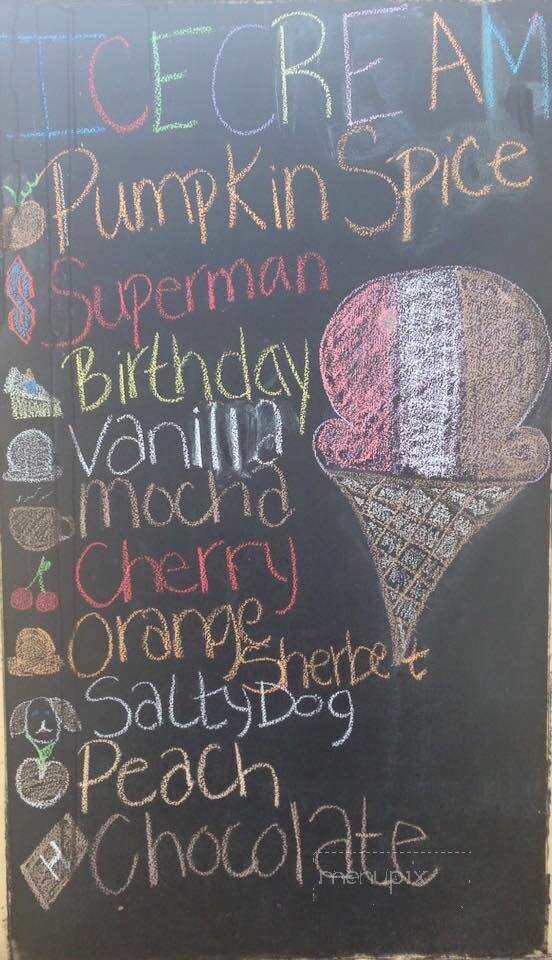 ICECREAM
Pumpkin Spice
Superman
Birthday
Vanilla
mocha
Cherry
Orange
Sherbet
Salty Dog
Peach
H
Chocolate
menupix